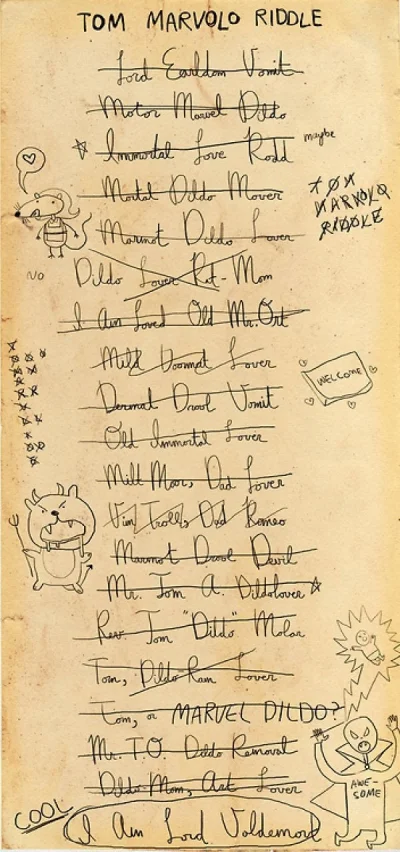 TOM MARVOLO RIDDLE
Lord Earldom Vomit
Motor Marvel Dildo
Immortal Love Rodd
maybe
Mortal Dildo Mover
TOM
MARVOLO
RIDDLE
Marmot Dildo Lover
NO
Dildo Lover Rot-Mom
I Am Loved Old Mr. Ort
Mild Doormat Lover
WELCOME
Dermal Drool Vomit
Old Immortal Lover
Milt Moor, Dad Lover
Vim Trolls, Dad Romeo
Marmot Drool Devil
Mr. Tom A. Dildolover
Rev. Tom "Dildo" Molar
Tom, Dildo Ram Lover
Tom, or MARVEL DILDO?
Mr. T.O. Dildo Removal
Dildo Mom, Art Lover
AWE-
SOME
COOL
I Am Lord Voldemort